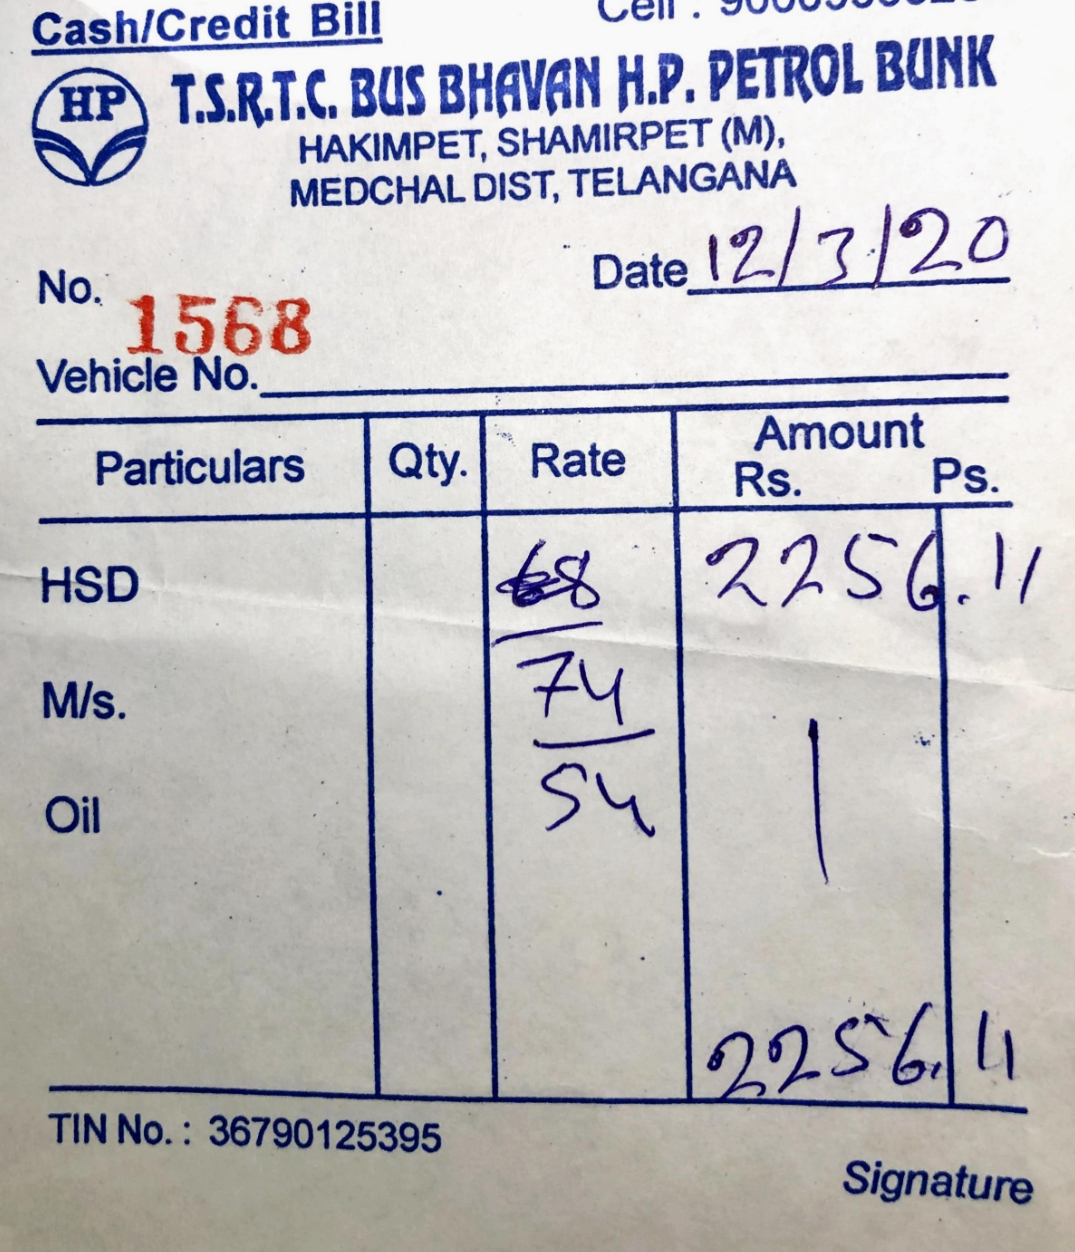 Cash/Credit Bill
Cell :
HP
T.S.R.T.C. BUS BHAVAN H.P. PETROL BUNK
HAKIMPET, SHAMIRPET (M),
MEDCHAL DIST, TELANGANA
Date 12/3/20
No. 1568
Vehicle No.
Particulars Qty. Rate Amount
Rs. Ps.
HSD 68 2256.11
M/s. 74
Oil 54
2256.11
TIN No. : 36790125395
Signature